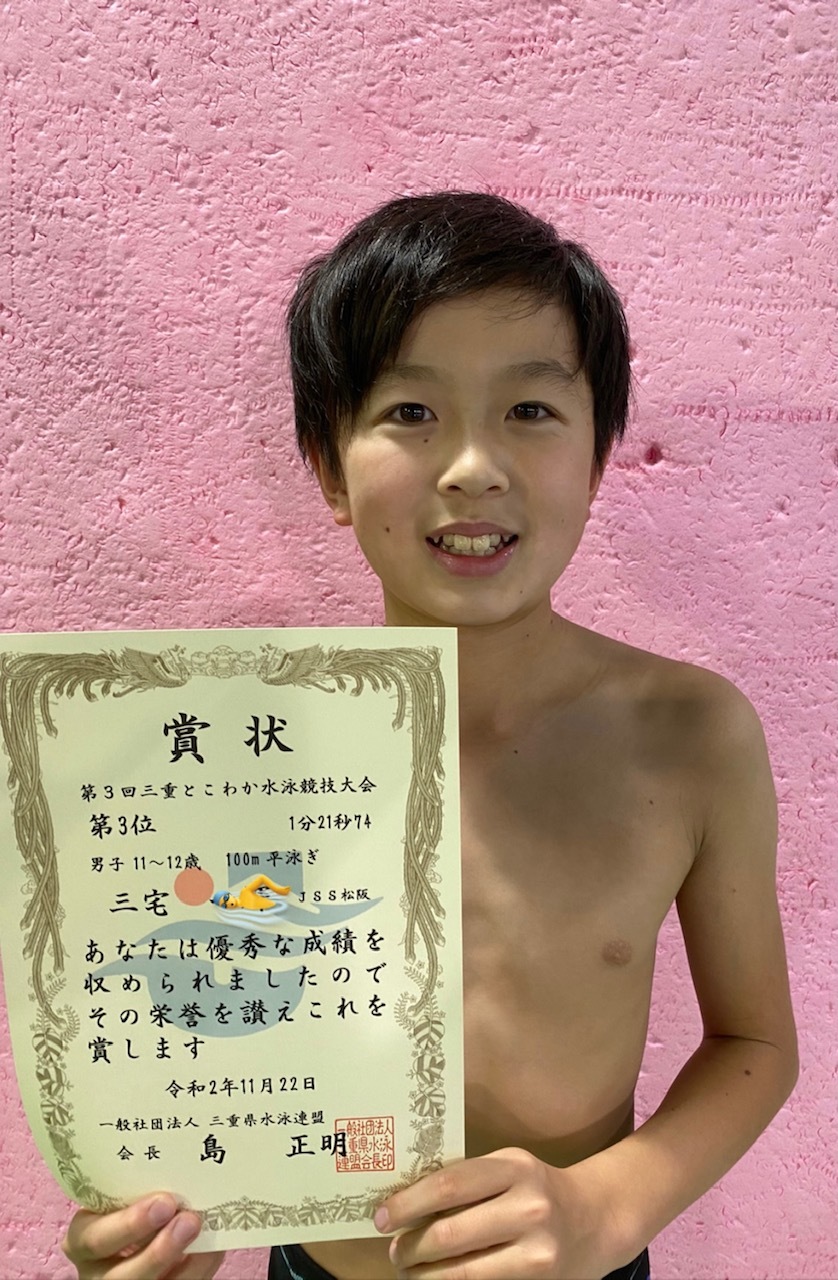 賞状
第3回三重とこわか水泳競技大会
第3位 1分21秒74
男子 11～12歳 100m 平泳ぎ
三宅 JSS松阪
あなたは優秀な成績を
収められましたので
その栄誉を讃えこれを
賞します
令和2年11月22日
一般社団法人 三重県水泳連盟
会長 島 正明
一般社団法人
三重県水泳
連盟会長印